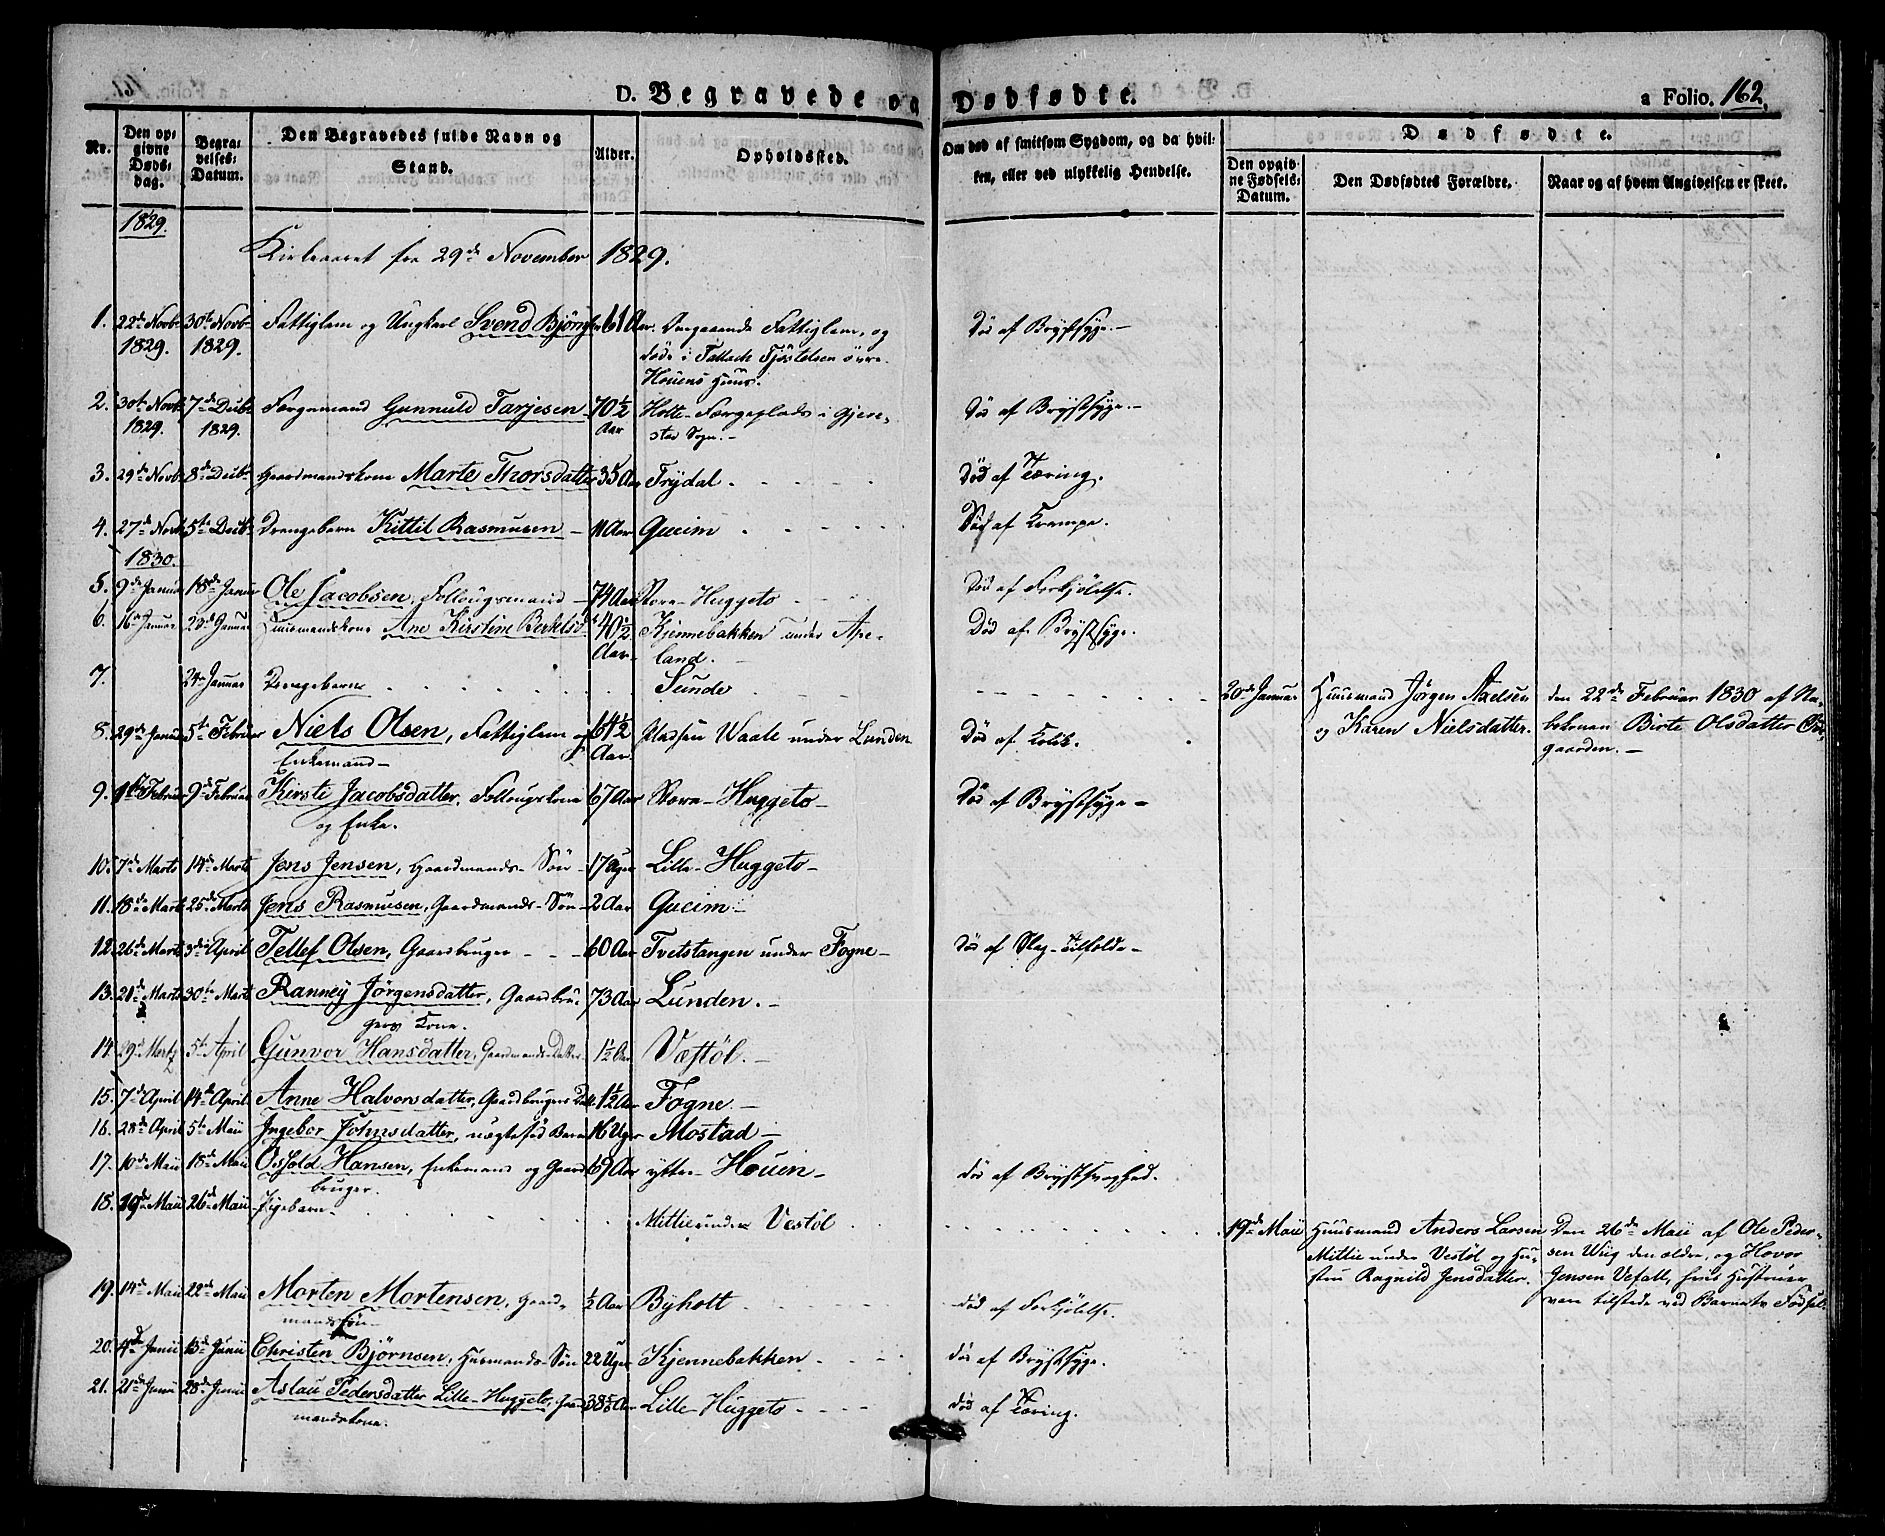 D. Begravede og Dødfødte.
a Folio. 162.
Nr.
Den opgivne Dødsdag.
Begravelses-Datum.
Den Begravedes fulde Navn og Stand.
Alder.
Opholdssted.
Om død af smitsom Sygdom, og da hvilken, eller ved ulykkelig Hendelse.
Dødfødte.
Den opgivne Fødsels-Datum.
Den Dødfødtes Forældre.
Naar og af hvem Angivelsen er skeet.
1829.
Kirkeaaret fra 29de November 1829.
1. 22de Novb. 30te Novb. Fattiglem og Ungkarl Svend Bjørnsen 61 Aar. Omgaaende Fattiglem, og Død af Brystsyge.-
1829. 1829. døde i Tallach Tjøstelsen øvre-
Houens Huus.
2. 30te Novb. 7de Decbr Færgemand Gunnuld Tarjesen 70½ Holte-Færgeplads i Gjere- Død af Brystsyge.-
1829. 1829. Aar stad Sogn.-
3. 29de Novb. 8de Decbr Gaardmandskone Marte Thorsdatter 35 Aar Trydal. Død af Tæring.
4. 27de Novb. 5te Decbr Drengebarn Kittil Rasmusen 11 Aar Qveim Død af Krampe.
1830.
5. 9de Januar 18de Januar Ole Jacobsen, Follougsmand 74 Aar Store-Huggeto Død af Forkjølelse.
6. 16de Januar 23de Januar Huusmandskone Ane Kirstine Berthelsd. 40½ Kjennebakken under Ape- Død af Brystsyge.
Aar. land.
7. 24de Januar Drengebarn Sunde 20de Januar Huusmand Jørgen Axelsen den 22de Februar 1830 af Na-
og Karen Nielsdatter. bokonen Birte Olsdatter
gaarden.-
8. 29de Januar 5te Februar Niels Olsen, Fattiglem og 64½ Pladsen Waale under Lunden Død af Kolik.
Enkemand- Aar
9. 1ste Februar 9de Februar Kirsti Jacobsdatter, Follougskone 67 Aar Store-Huggeto- Død af Brystsyge-
og Enke.
10. 7de Marts 14de Marts Jens Jensen, Gaardmands-Søn 17 Uger Lille-Huggeto-
11. 18de Marts 25de Marts Jens Rasmusen, Gaardmands-Søn 2 Aar Qveim-
12. 26de Marts 3die April Tellef Olsen, Gaardbruger 60 Aar Tvetstangen under Fogne- Død af Slag-Tilfælde-
13. 21de Marts 30te Marts Ranney Jørgensdatter, Gaardbru- 73 Aar Lunden.-
gers Kone.
14. 29de Martz 5te April Gunvor Hansdatter, Gaardmands-Datter 1½ Aar Vestøl.-
15. 7de April 14de April Anne Halvorsdatter, Gaardbrugers Datt. 1½ Aar Fogne.-
16. 28de April 5te Maii Ingebor Johnsdatter, uægtefød Barn 16 Uger Mostad-
17. 10de Maii 18de Maii Osfold Hansen, Enkemand og Gaard- 69 Aar yttre-Houen- død af Brystsvaghed.
bruger.
18. 19de Maii 26de Maii Pigebarn. Mittie under Vestøl 19de Maii Huusmand Anders Larsen Den 26de Maii af Ole Peder-
Mittie under Vestøl og Hu- sen Wiig den ældre, og Hovor
stru Ragnild Jensdatter. Jensen Vefall, hvis Hustruer
vare tilstede ved Barnets Fødsel.
19. 14de Maii 22de Maii Morten Mortensen, Gaard- ½ Aar Byholt død af Forkjølelse.
mands Søn-
20. 4de Junii 13de Junii Christen Bjørnsen, Husmands-Søn 22 Uger Kjennebakken død af Brystsyge.
21. 21de Junii 28de Junii Aslau Pedersdatter Lille-Huggeto, Gaard- Aar Lille-Huggeto død af Tæring.
mandskone.